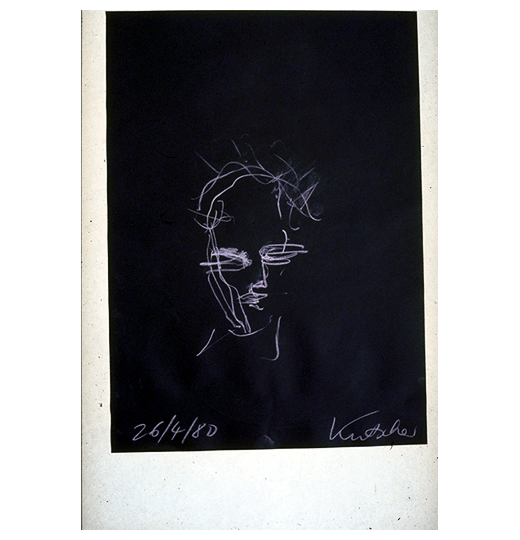 26/4/80
Kutscher